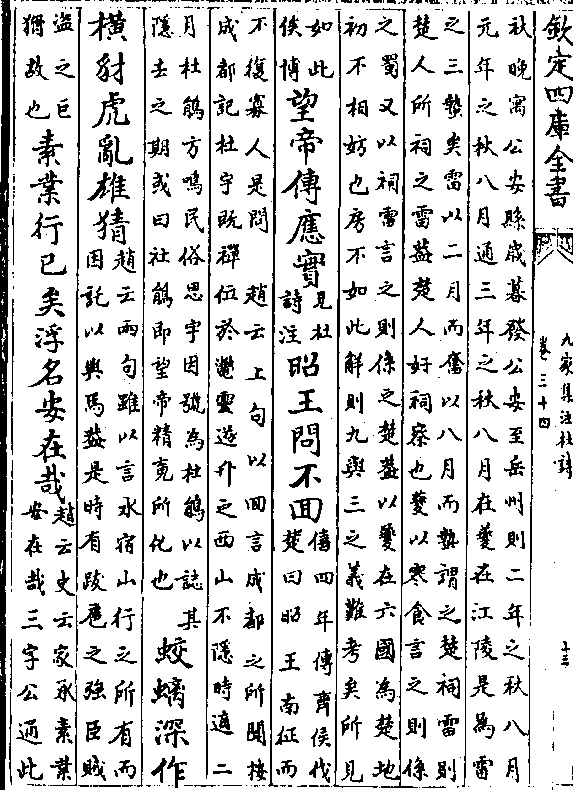 欽定四庫全書
九家集注杜詩
卷三十四
十三
秋晚寓公安縣歲暮發公安至岳州則二年之秋八月
元年之秋八月通三年之秋八月在夔在江陵是為雷
之三蟄矣雷以二月而奮以八月而蟄謂之楚祠雷則
楚人所祠之雷蓋楚人好祠祭也夔以寒食言之則係
之蜀又以祠雷言之則係之楚蓋以夔在六國為楚地
初不相妨也房不如此解則九與三之義難考矣所見
如此
俟博
望帝傳應實
見杜
詩注
昭王問不回
僖四年傳齊侯伐
楚曰昭王南征而
不復寡人是問 趙云上句以回言成都之所聞按
成都記杜宇既禪位於鼈靈遊升之西山不隱時適二
月杜鵑方鳴民俗思宇因號為杜鵑以誌其
隱去之期或曰杜鵑即望帝精魂所化也
蛟螭深作
橫豺虎亂雄猜
趙云兩句雖以言水宿山行之所有而
因託以興焉蓋是時有跋扈之強臣賊
盜之巨
猾故也
素業行已矣浮名安在哉
趙云史云家承素業
安在哉三字公通此